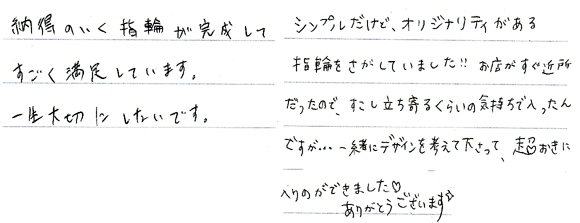 納得のいく指輪が完成して
すごく満足しています。
一生大切にしたいです。
シンプルだけど、オリジナリティがある
指輪をさがしていました!! お店がすぐ近所
だったので、すこし立ち寄るくらいの気持ちで入ったん
ですが… 一緒にデザインを考えて下さって、超おきに
入りのができました♡
ありがとうございます